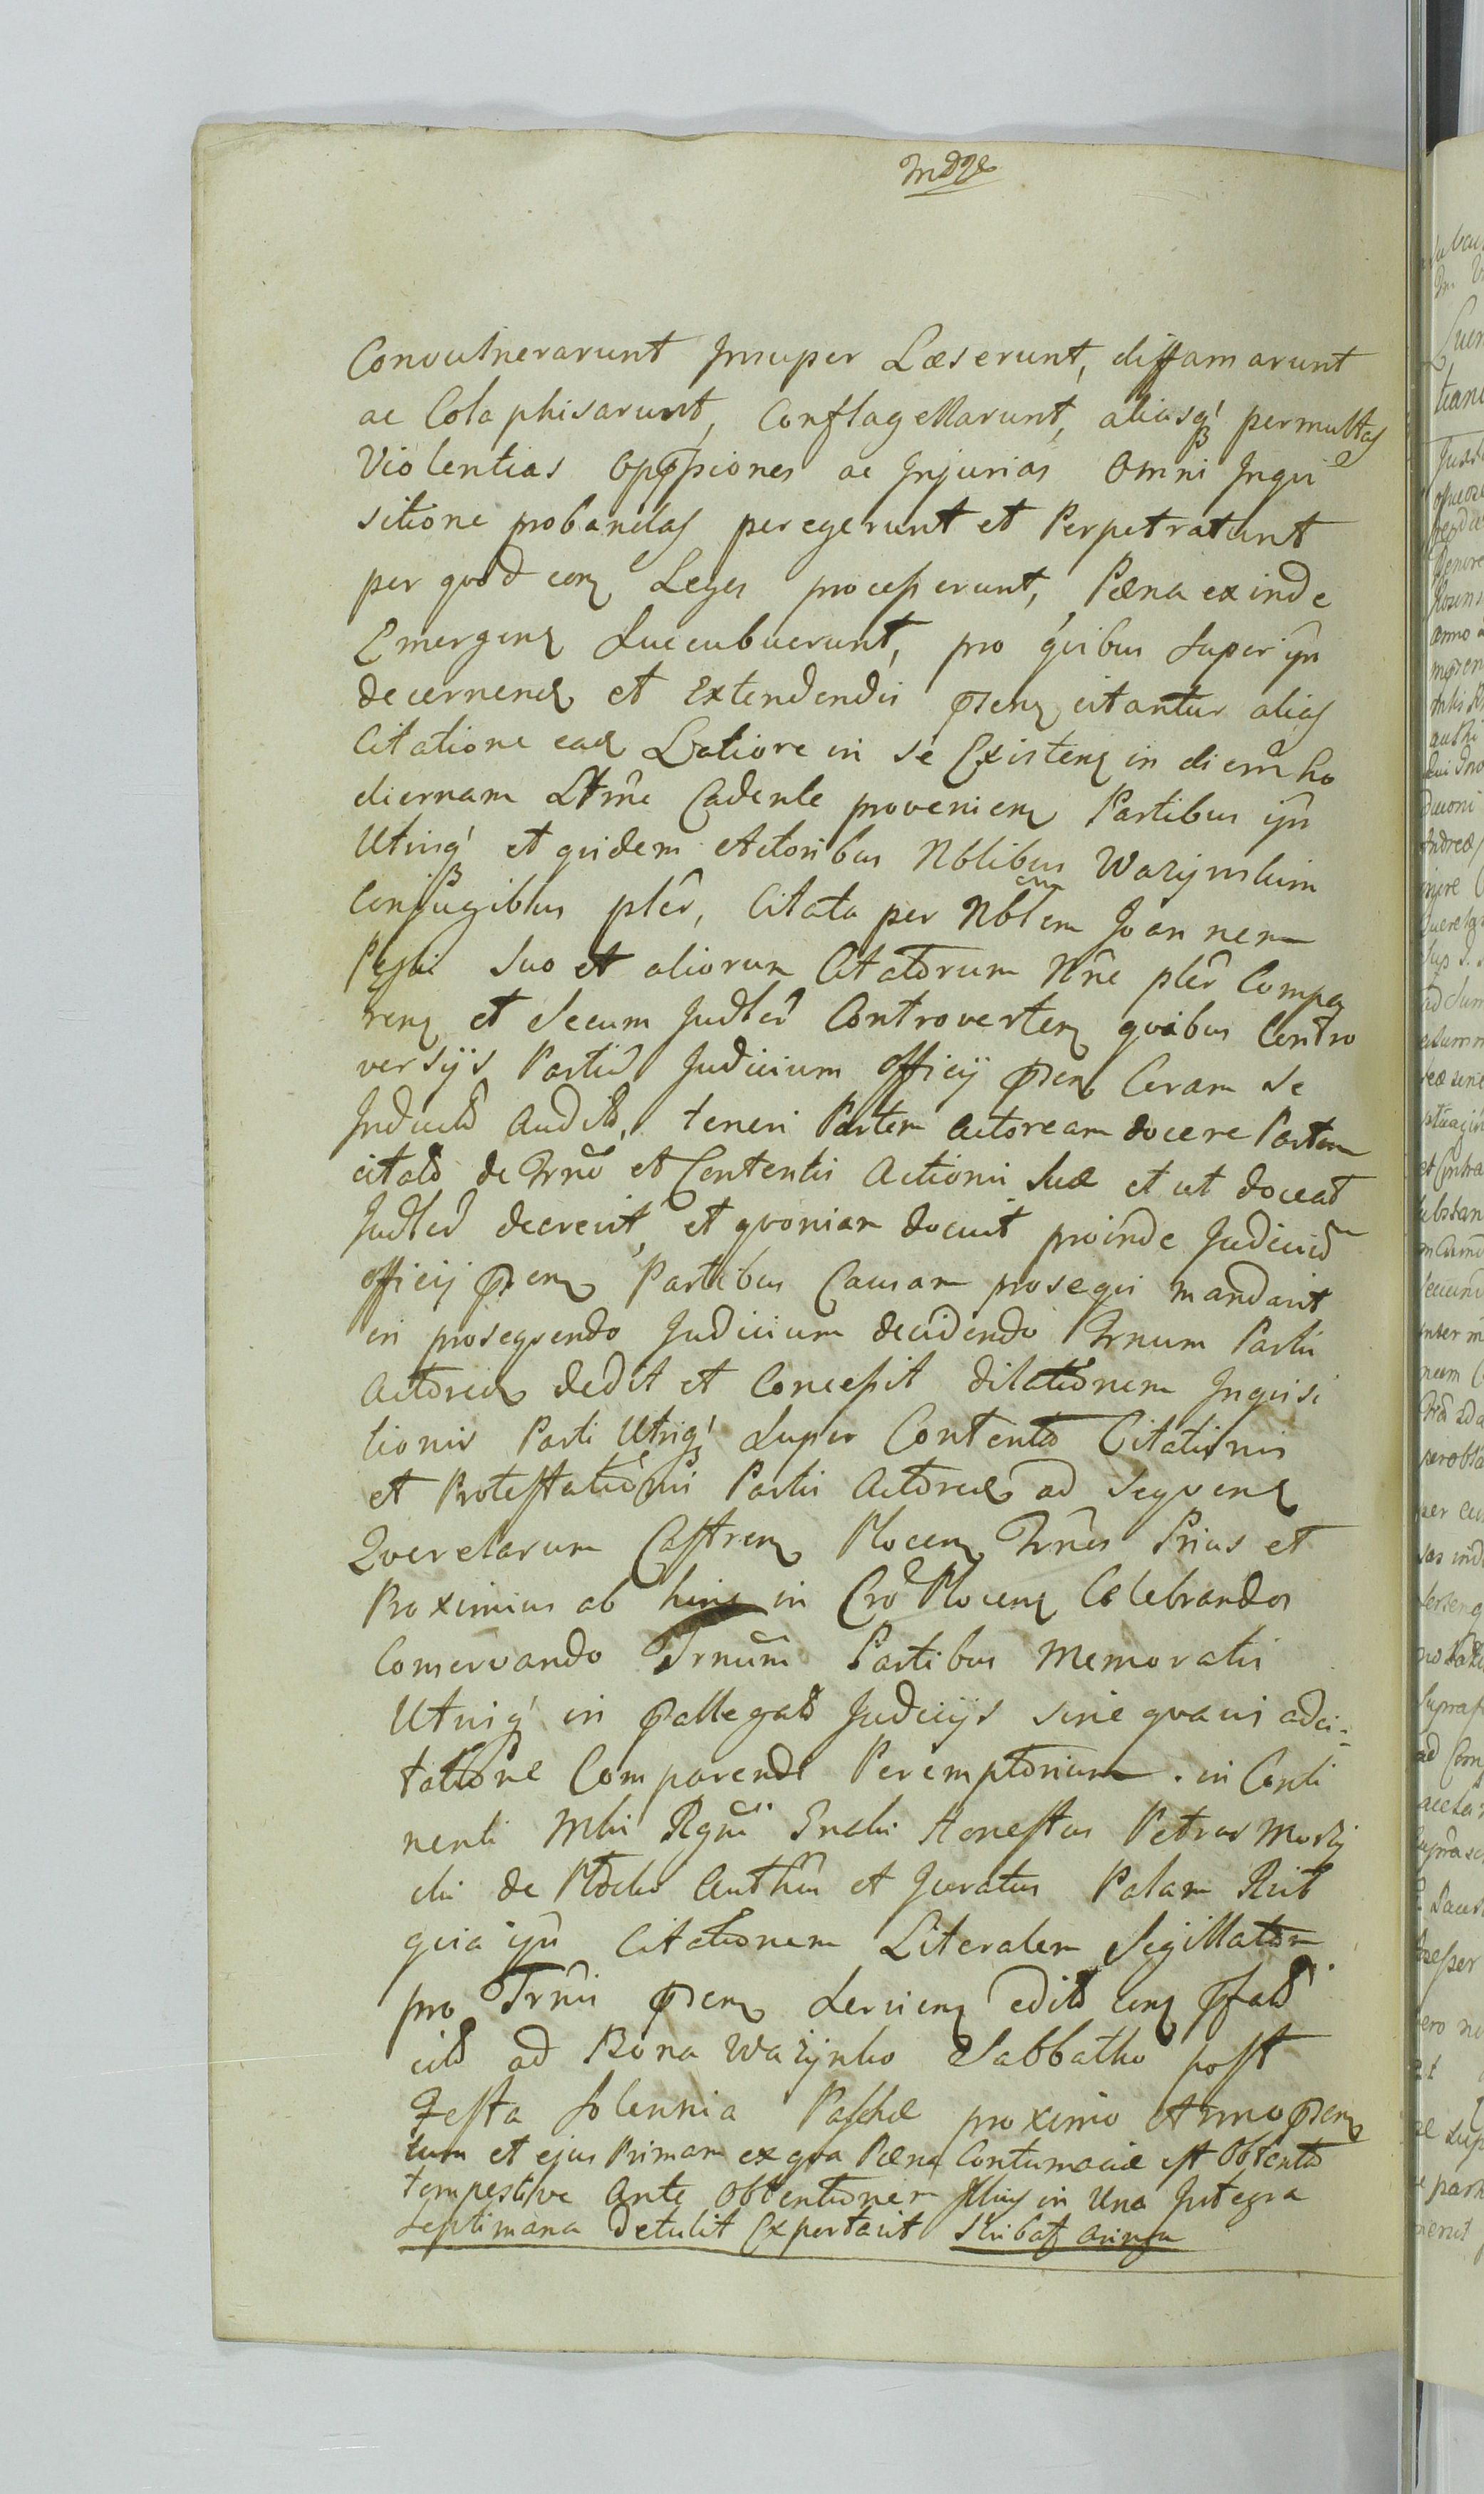 Convulnerarunt Insuper Læserunt, diffamarunt
ac Colaphisarunt, Conflagellarunt, aliasq permultas
Violentias Oppssiones ac Injurias Omni Inqui
sitione probandas peregerunt et Perpetrarunt
per quod con Leges processerunt, Pæna exinde
Emergen Succubuerunt, pro quibus Super ijn
decernend et Extendendis pnen citantur alias
Citatione ead Latiore in se Existen in diem ho
diernam Ltme Cadente provenien Partibus ijn
Utrisq et quidem Actoribus Nblibus Wazynskim
Conjugibus pler, Citata per Nblem Joannem
suo et aliorum Citatorum Nne pler Compa
ren et Secum Judler Controverten quibus Contro
versijs Partiu Judicium Officij pnen Coram se
Inductis Auditis, teneri Partem Actoream docere Partem
citata de Trno et Contentis Actionis Suæ et ut doceat
Judler decrevit, et quoniam docuit proinde Judiciu
officij pnen Partibus Causam prosequi mandavit
in prosequendo Judicium decidendo Trnum Partis
Actoreæ dedit et Concessit dilationem Inquisi
tionis Parti Utriq Super Contentis Citationis
et Protestationis Partis Actoreæ ad Sequen
Querelarum Castren Plocen Trnos Prius et
Proximius ab hinc in Cro Plocen Celebrandos
Conservando Trnum Partibus Memoratis
Utrisq in pallegatis Judicijs sine quavis adci-
tatione Comparendi Peremptorium. in Conti
nenti Mlis Rgni Gnalis Honestus Petrus
de Plocko Authen et Juratus Palam Rcit
quia ijn Citationem Literalem Sigillatam
pro Trnis pnen Servien edit con pfat
citt ad Bona Wazynko Sabbatho post
Festa Solennia Paschæ proximo Anno pnen
tum et ejus Primam ex qua Pæna Contumaciæ est Obtenta
tempestive Ante Obtentionem Illius in Una Integra
Septimana Detulit Exportavit